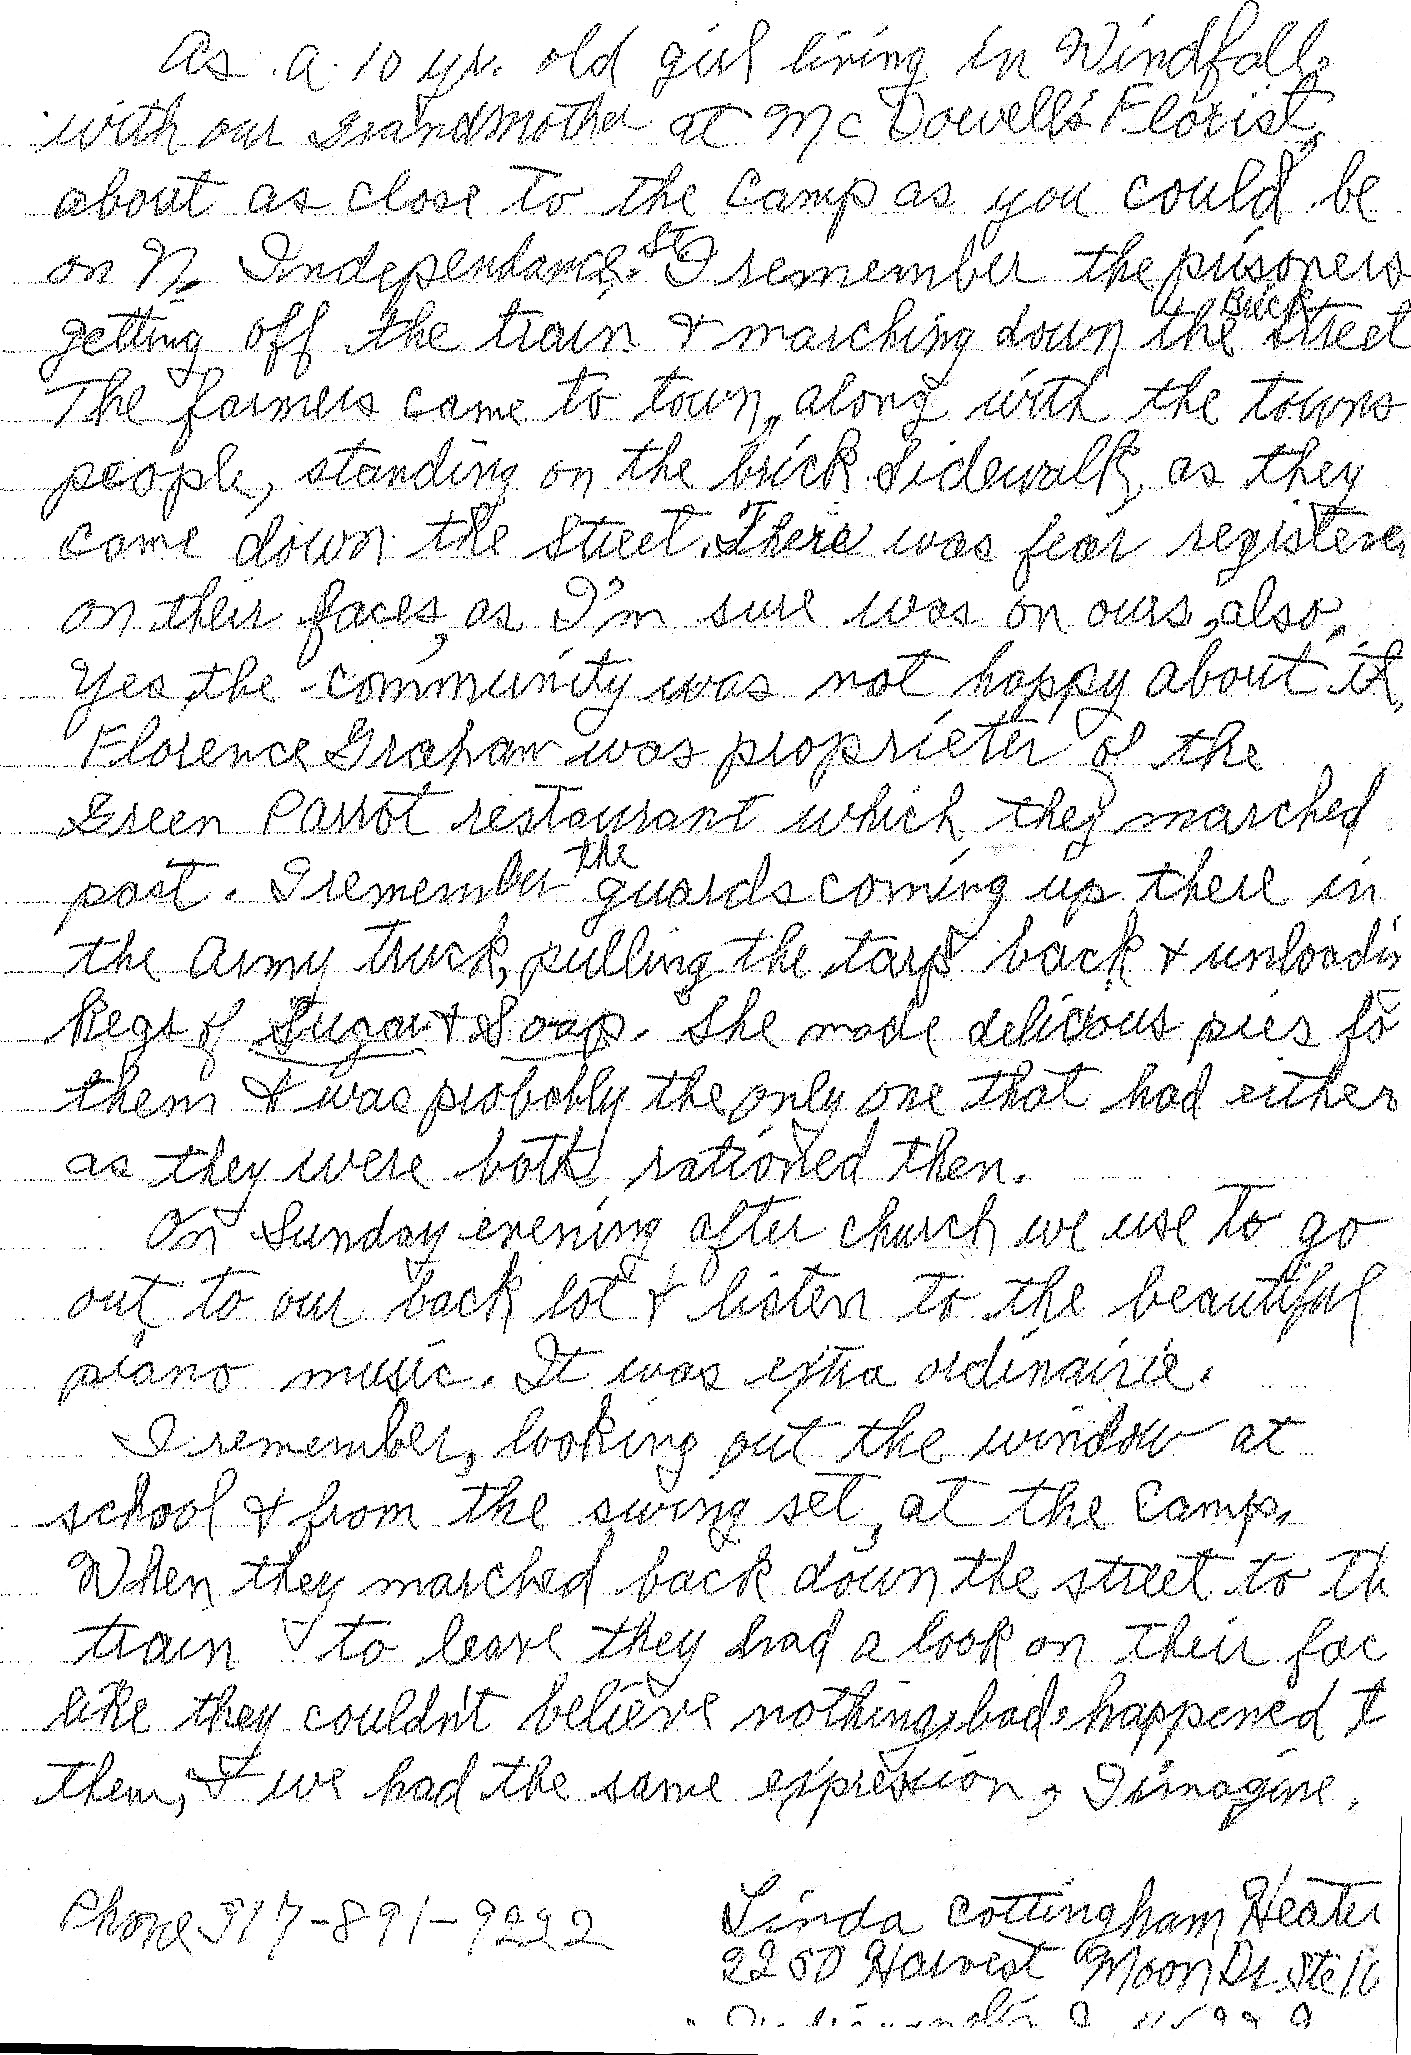 As a 10 yr. old girl living in Windfall,
with our Grandmother at McDowell's Florist,
about as close to the Camp as you could be
on N. Independance St. I remember the prisoners
getting off the train & marching down the Brick street
The farmers came to town, along with the towns
people, standing on the brick sidewalk, as they
came down the street. There was fear registere
on their faces, as I'm sure was on ours, also.
Yes, the community was not happy about it.
Florence Graham was proprieter of the
Green Parrot restaurant which they marched
past. I remember the guards coming up there in
the Army truck, pulling the tarp back & unloadin
Kegs of Sugar & Soap. She made delicious pies fo
them & was probably the only one that had either
as they were both rationed then.
On Sunday evening after church we use to go
out to our back lot & listen to the beautiful
piano music. It was extra ordinairie.
I remember, looking out the window at
school & from the swing set, at the Camp.
When they marched back down the street to th
train to leave they had a look on their fac
like they couldn't believe nothing bad happened t
them, & we had the same expression, I imagine.
Phone 317-891-9222
Linda Cottingham Heater
2250 Harvest Moon Dr. Ste